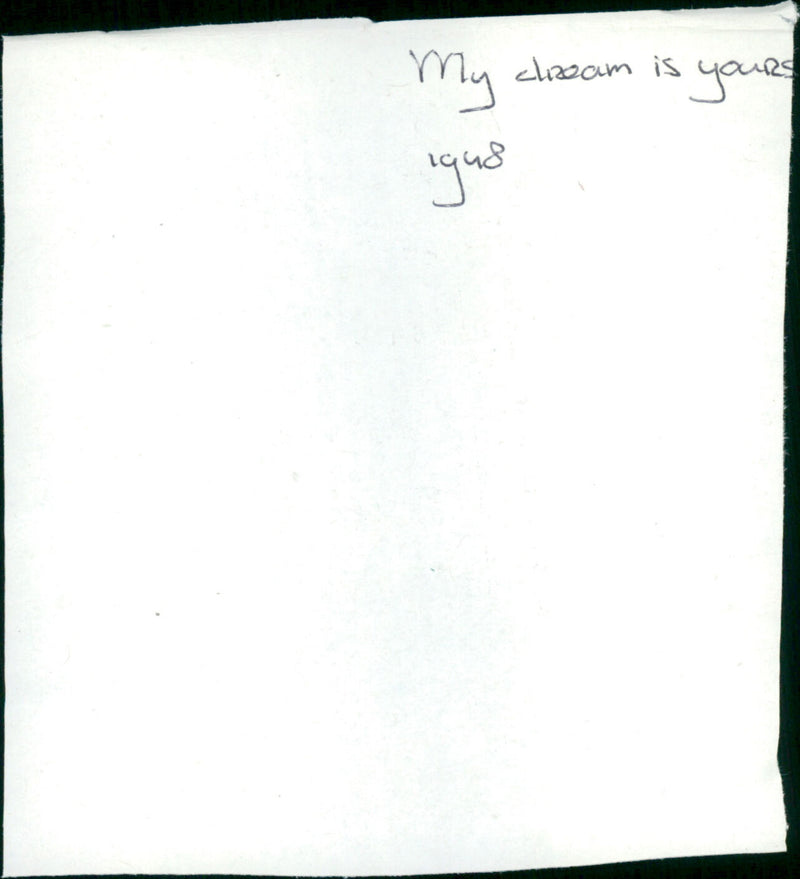 My dream is yours
1948